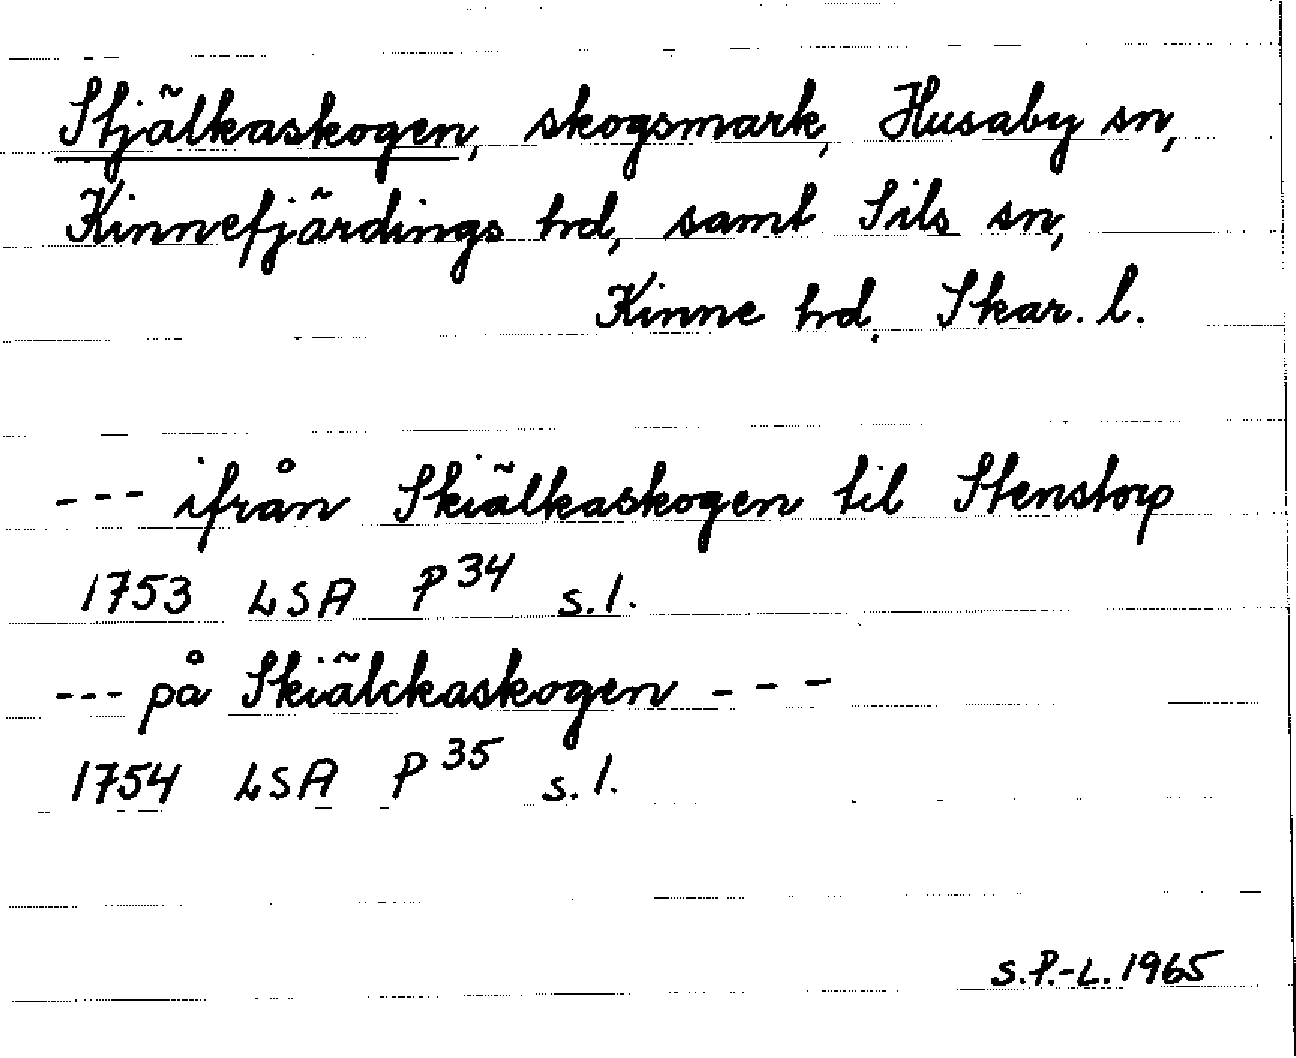 Stjälkaskogen, skogsmark, Husaby sn,
Kinnefjärdings hrd, samt Sils sn,
Kinne hrd. Skar. l.
--- ifrån Skiälkaskogen til Stenstorp
1753 LSA P 34 s.1.
--- på Skiälckaskogen ---
1754 LSA P 35 s.1.
S.P.-L. 1965